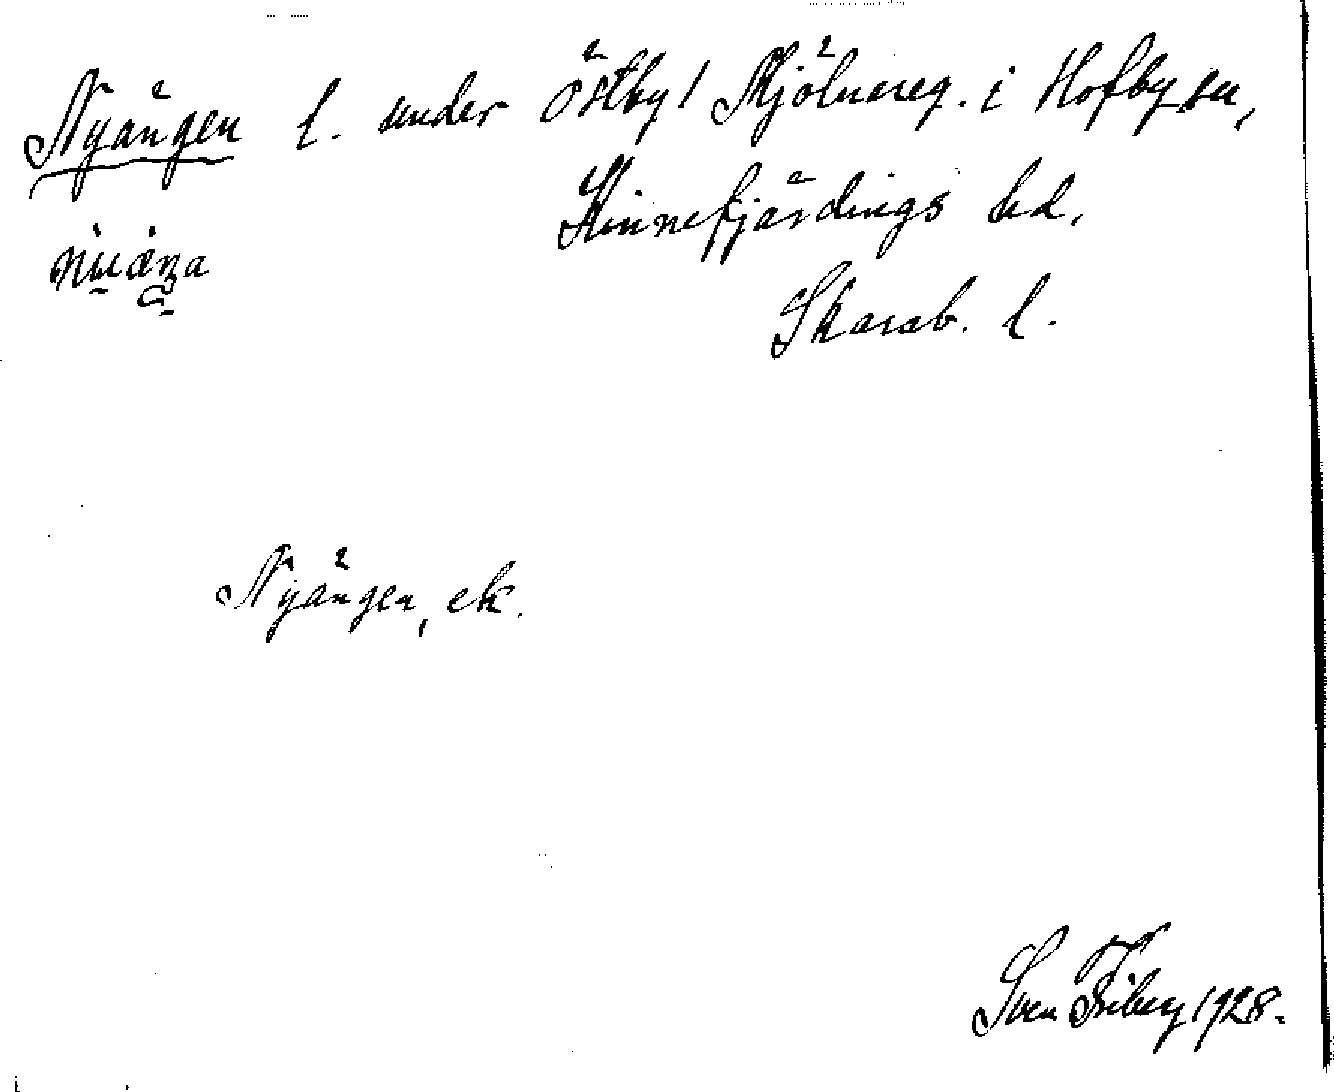 Nyängen l. under Östby 1 Mjölnareg. i Hofby sn,
Kinnefjärdings hd.
Skarab. l.
Nyängen, ek.
Sven Friberg 1928.